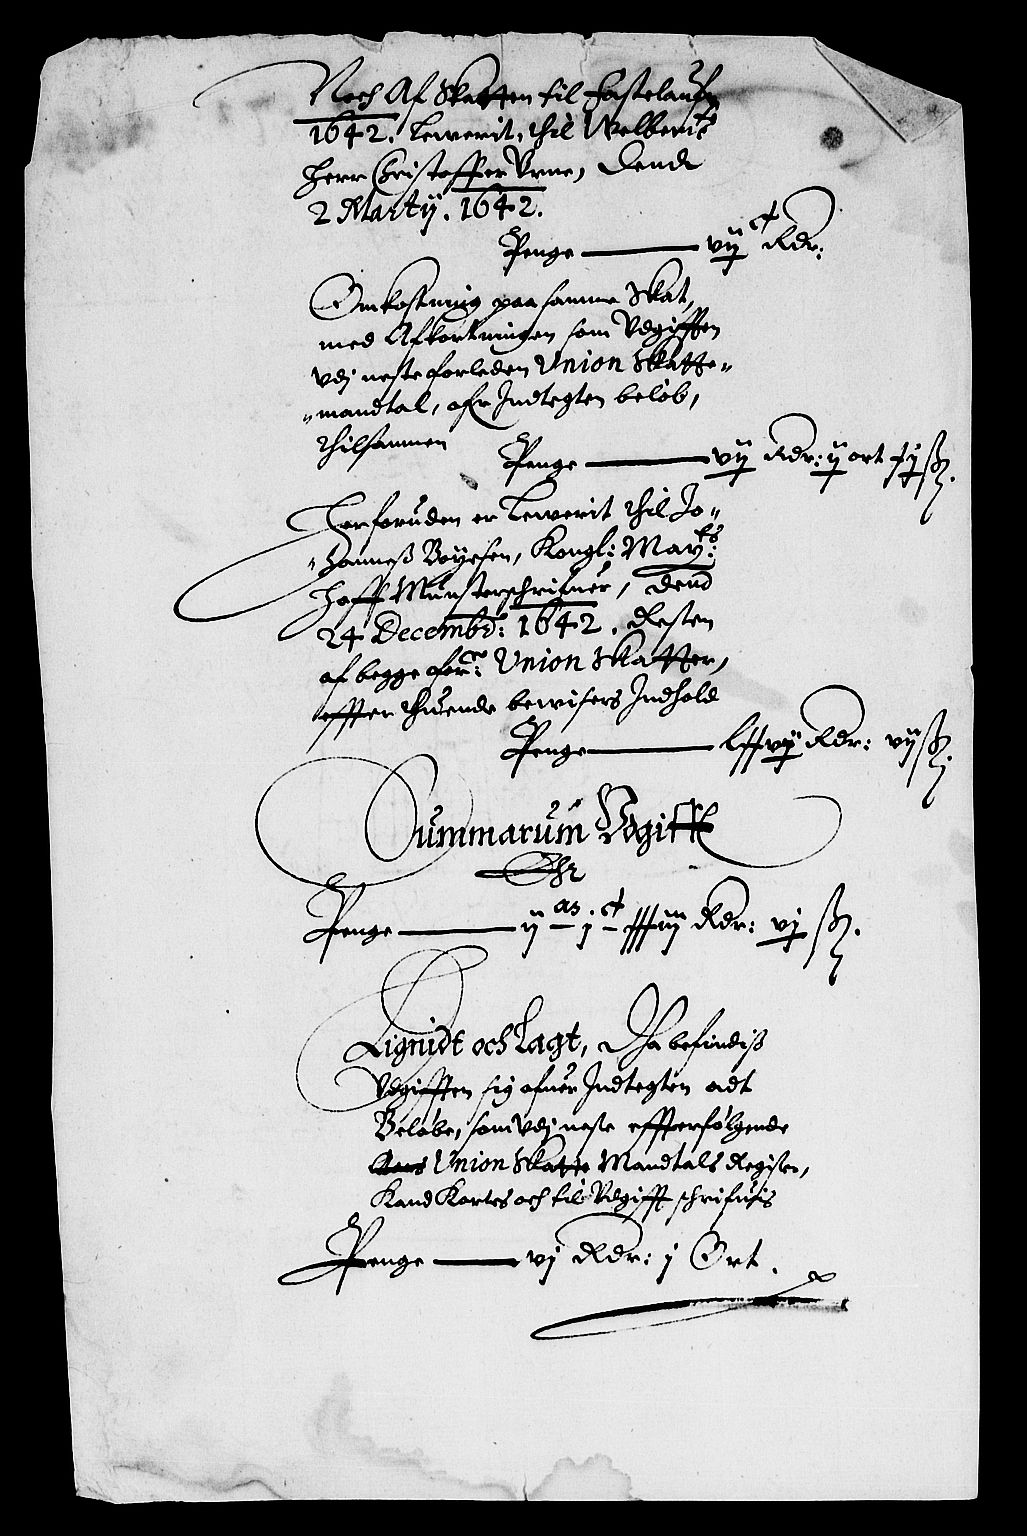 Noch Af Skatten til Fastelaufn
1642. Lewerit, thil Welberts
Herr Christoffer Vrne, Dend
2 Martij. 1642.
Penge — vij ct Rdr:
Omkostning paa samme Skat,
med Afkortningen som Vdgifften
vdj neste forleden Union Skatte-
-mandtal, ofr Indtegten beløb,
thilsammen
Penge — vij Rdr: ij ort xj ß.
Herforuden er Lewerit thil Jo-
-hanneß Boyesen, Kongl: Mayts:
Hoff Mŭnsterschrifuer, Dend
24 Decembr: 1642. Resten
af begge forne: Union Skatter,
effter thuende bewisers Indhold
Penge — Lxxvij Rdr: vij ß.
Summarum Vdgifft
Ehr
Penge — ij m j ct xxxiiij Rdr: vj ß.
Lignidt och Lagt, Da befindiß
Vdgifften sig ofuer Indtegten adt
Beløbe, som vdj neste effterfølgende
Union Skatte Mandtals Register,
Kand Kortes och til Vdgifft schrifuis
Penge — vj Rdr: j Ort.